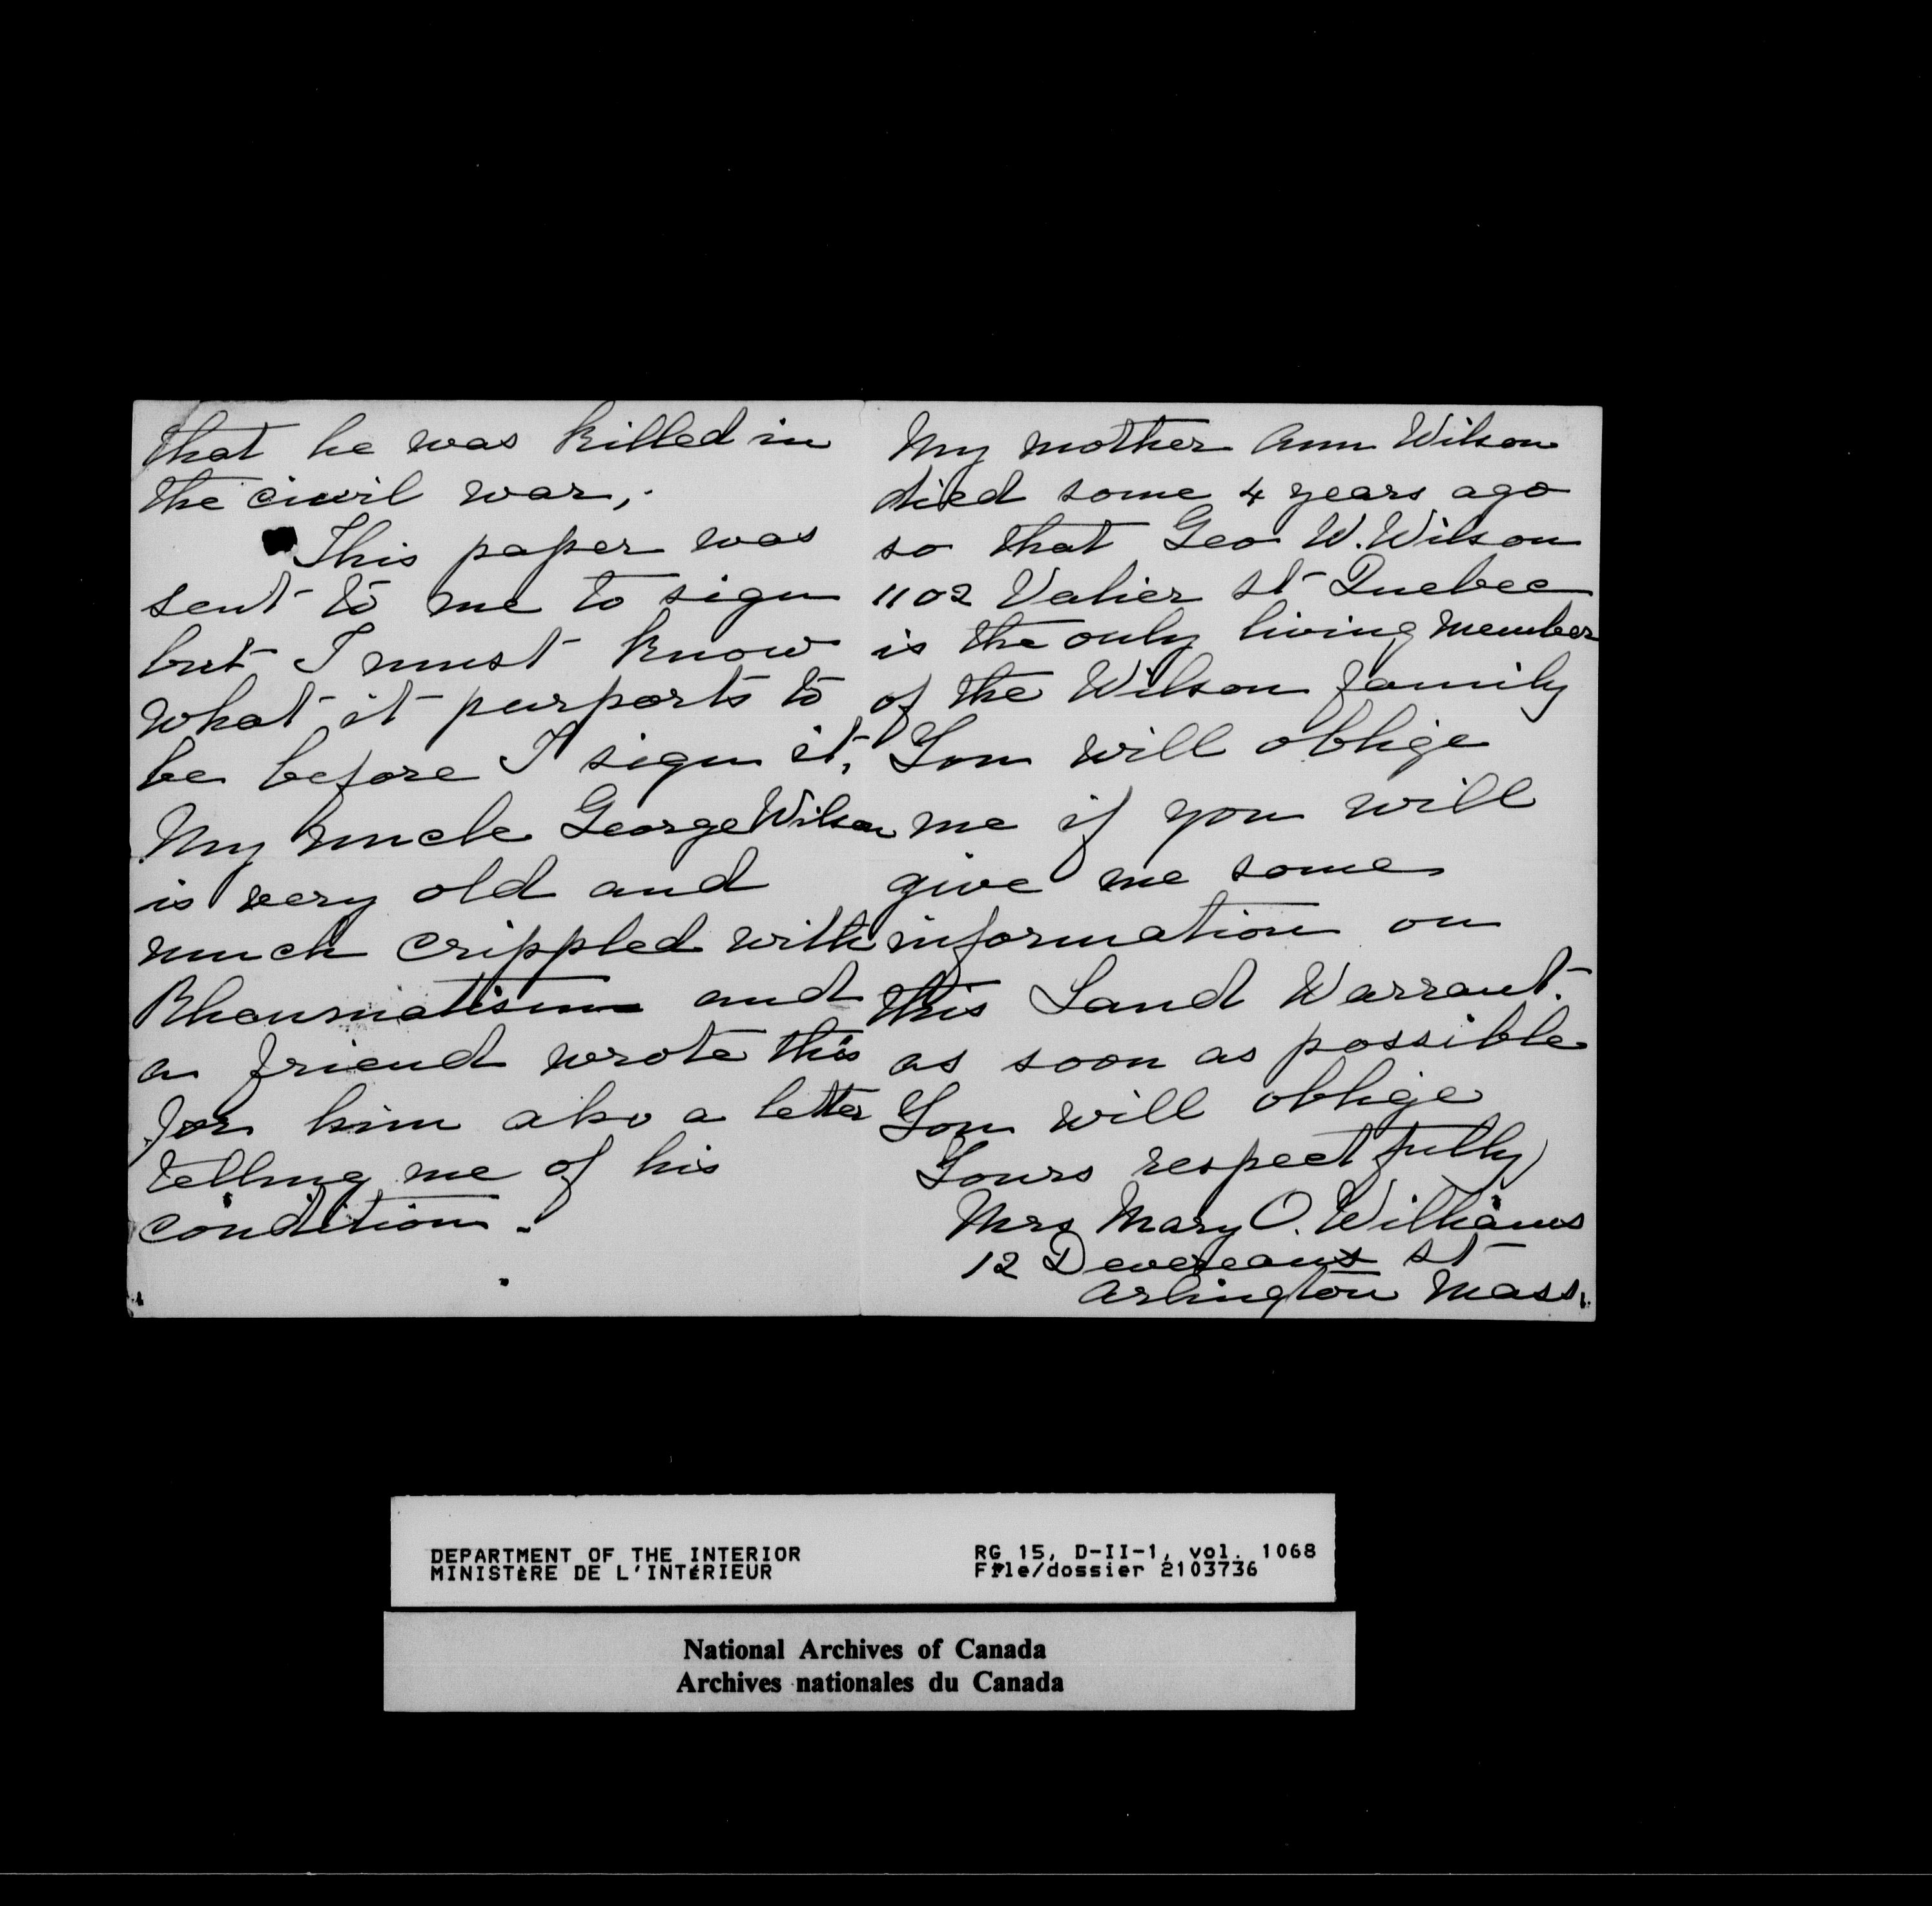 that he was killed in
the civil war,.
This paper was
sent to me to sign
but I must know
what it purports to
be before I sign it,
My uncle George Wilson
is very old and
much crippled with
Rheumatism and
a friend wrote this
for him also a letter
telling me of his
condition.
My mother Ann Wilson
died some 4 years ago
so that Geo W. Wilson
1102 Valier St Quebec
is the only living member
of the Wilson family
You will oblige
me if you will
give me some
information on
this Land Warrant.
as soon as possible
You will oblige
Yours respectfully
Mrs Mary O. Williams
12 Devereaux St
Arlington Mass.
DEPARTMENT OF THE INTERIOR
MINISTÈRE DE L'INTÉRIEUR
RG 15, D-II-1, vol. 1068
File/dossier 2103736
National Archives of Canada
Archives nationales du Canada